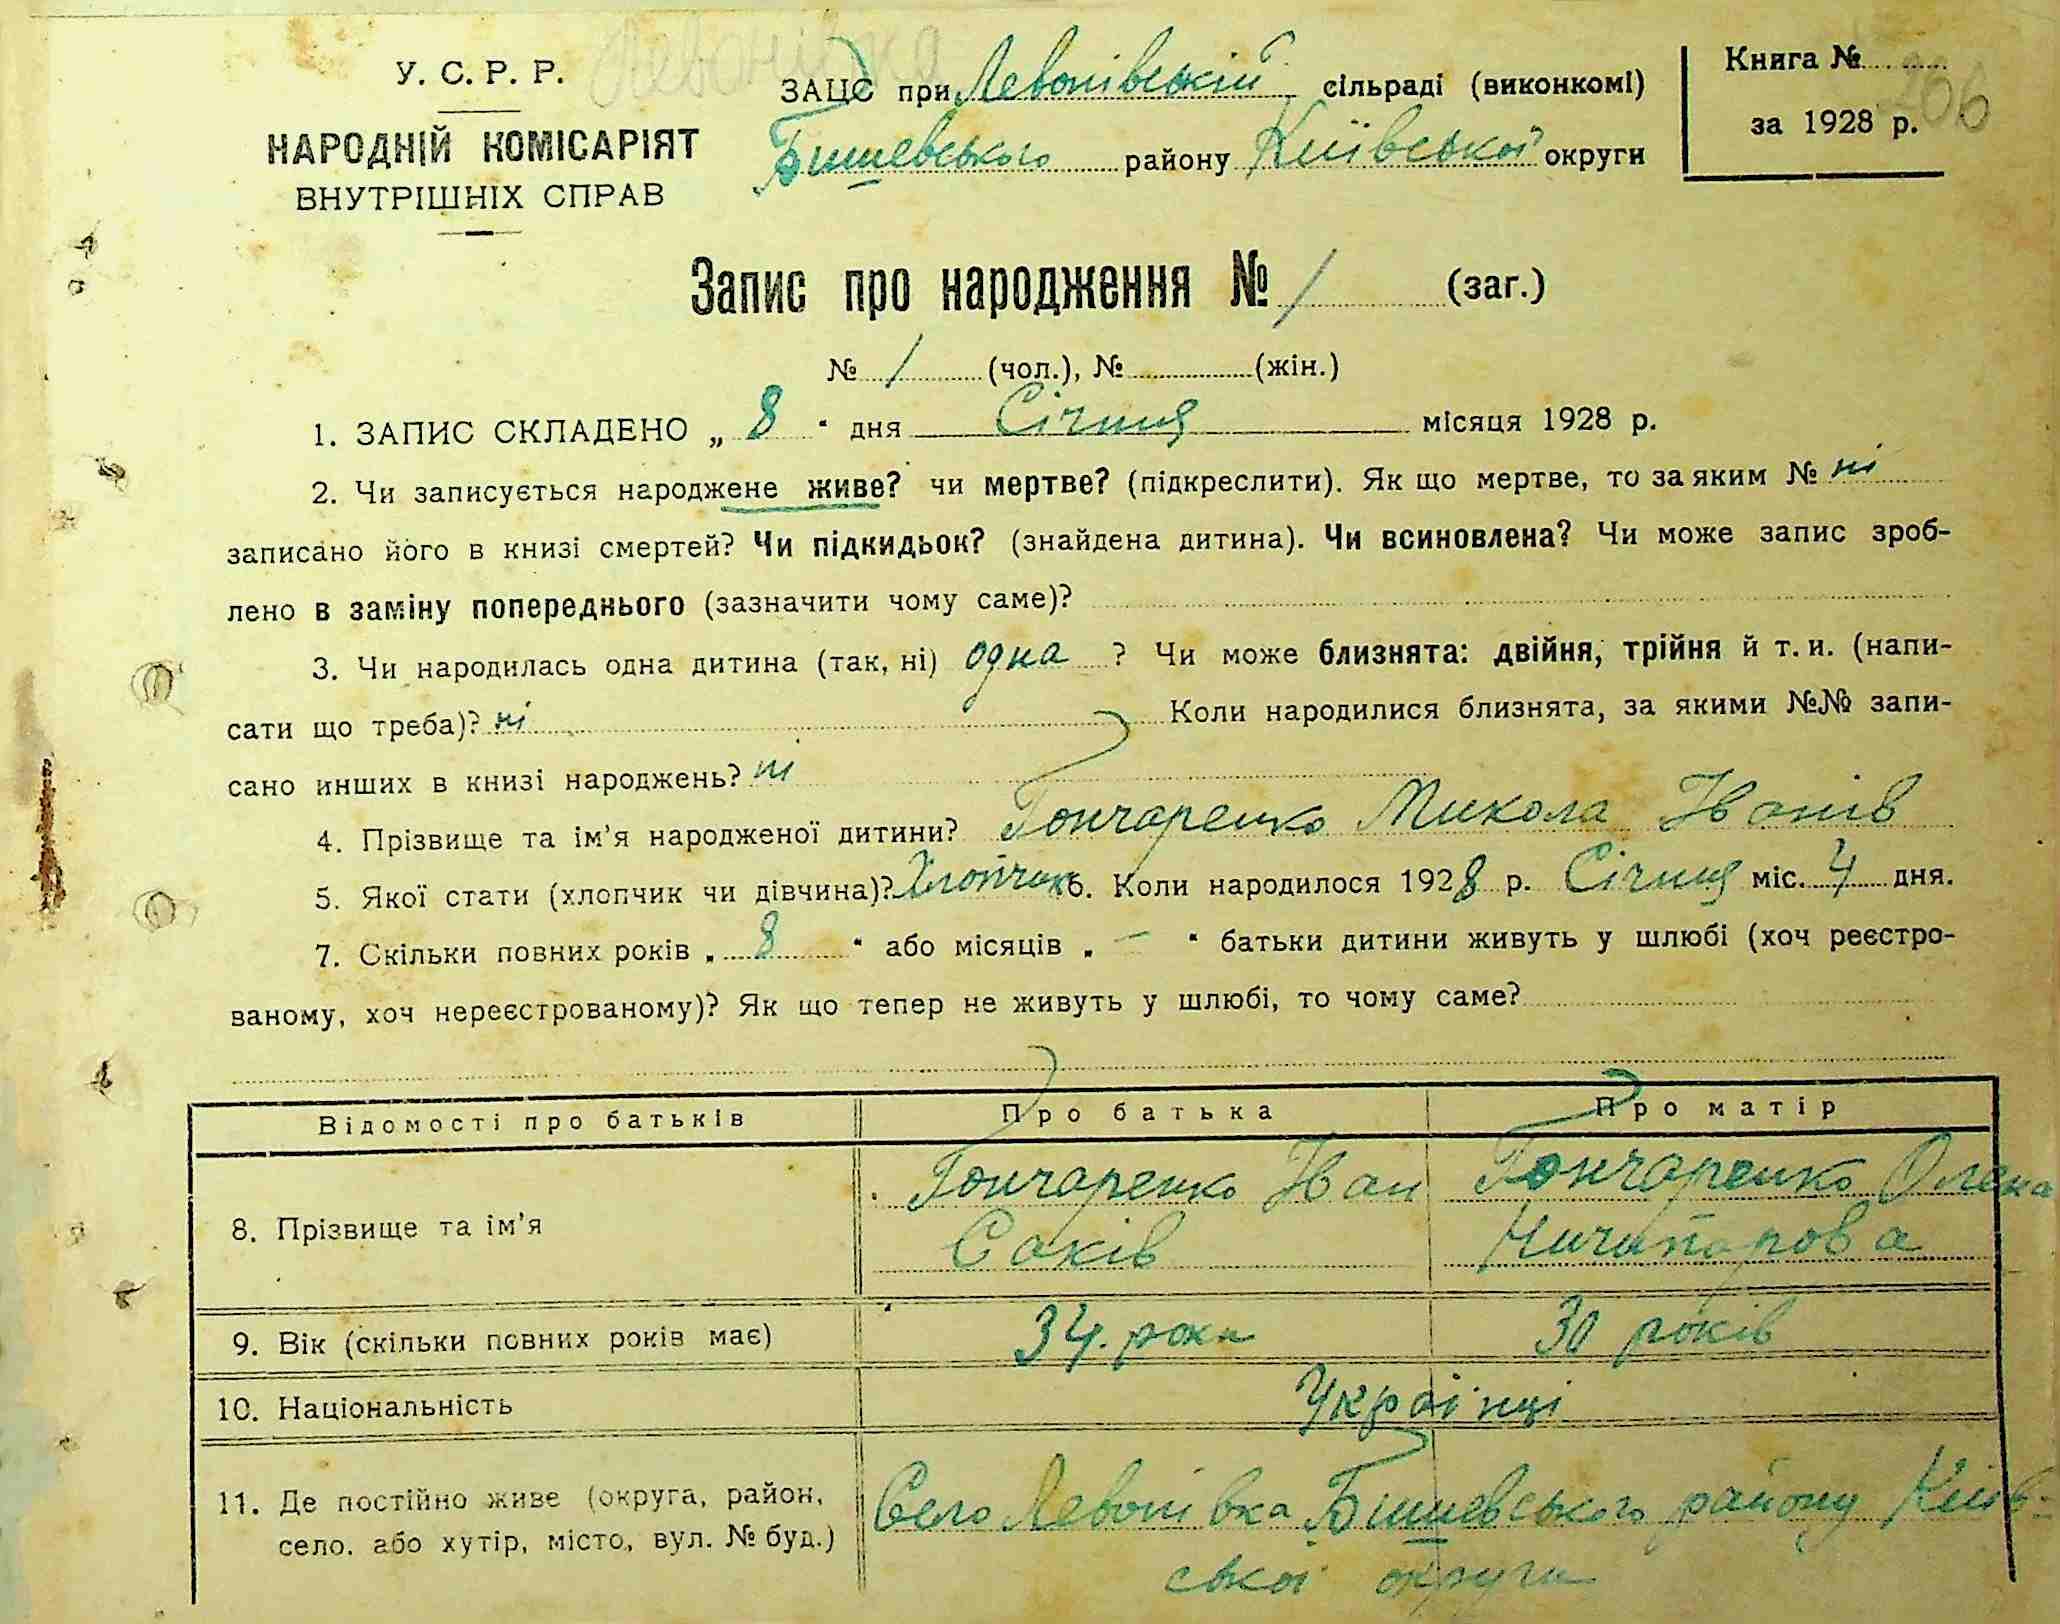 Левонівка
У. С. Р. Р.
НАРОДНІЙ КОМІСАРІЯТ
ВНУТРІШНІХ СПРАВ
ЗАЦС при Левонівській сільраді (виконкомі)
Бишевського району Київської округи
Книга №
206
за 1928 р.
Запис про народження № 1 (заг.)
№ 1 (чол.), № (жін.)
1. ЗАПИС СКЛАДЕНО „ 8 “ дня Січня місяця 1928 р.
2. Чи записується народжене живе? чи мертве? (підкреслити). Як що мертве, то за яким № ні
записано його в книзі смертей? Чи підкидьок? (знайдена дитина). Чи всиновлена? Чи може запис зроб-
лено в заміну попереднього (зазначити чому саме)?
3. Чи народилась одна дитина (так, ні) одна ? Чи може близнята: двійня, трійня й т. и. (напи-
сати що треба)? ні Коли народилися близнята, за якими №№ запи-
сано инших в книзі народжень? ні
4. Прізвище та ім'я народженої дитини? Гончаренко Микола Іванів
5. Якої стати (хлопчик чи дівчина)? Хлопчик 6. Коли народилося 1928 р. Січня міс. 4 дня.
7. Скільки повних років „ 8 “ або місяців „ – “ батьки дитини живуть у шлюбі (хоч реєстро-
ваному, хоч нереєстрованому)? Як що тепер не живуть у шлюбі, то чому саме?
Відомості про батьків Про батька Про матір
8. Прізвище та ім'я Гончаренко Іван Гончаренко Олена
Саків Ничипарова
9. Вік (скільки повних років має) 34. роки 30 років
10. Національність Українці
11. Де постійно живе (округа, район, Село Левонівка Бишевського району Київ-
село. або хутір, місто, вул. № буд.) ської округи